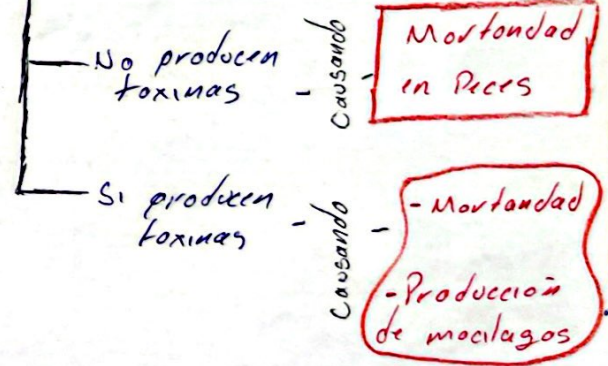 No producen
toxinas -
Causando
-
Mortandad
en Peces
Si producen
toxinas -
Causando
-
- Mortandad
- Producción
de mocilagos.